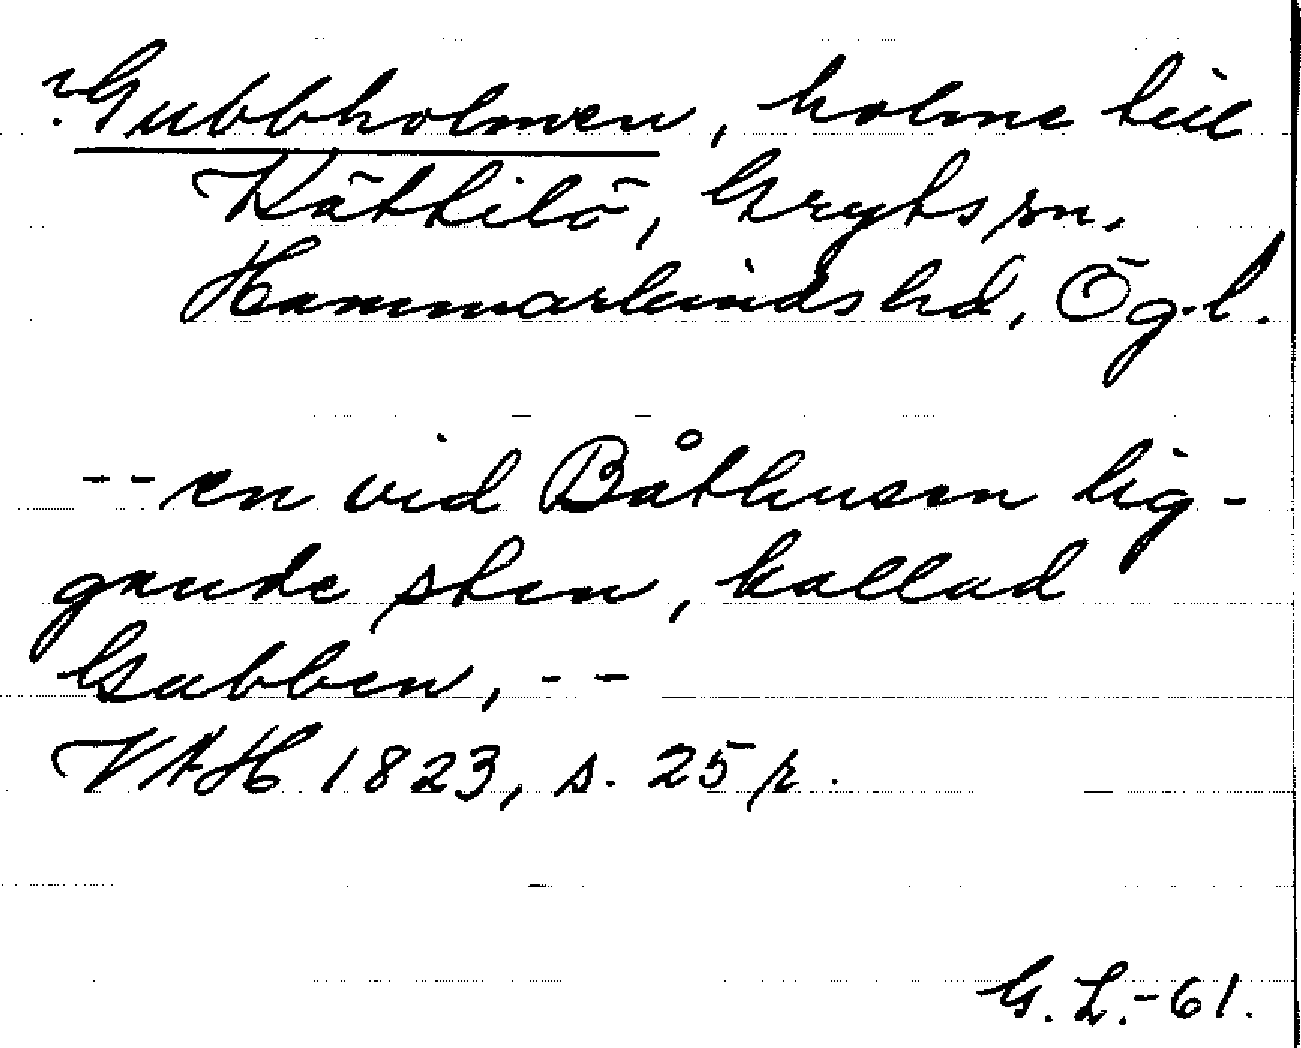 ?Gubbholmen, holme till
Kättilö, Gryts sn.
Hammarkinds hd, Ögl.
-- en vid Båthusen lig-
gande sten, kallad
Gubben, --
VAH 1823, s. 25 r.
G. L.-61.